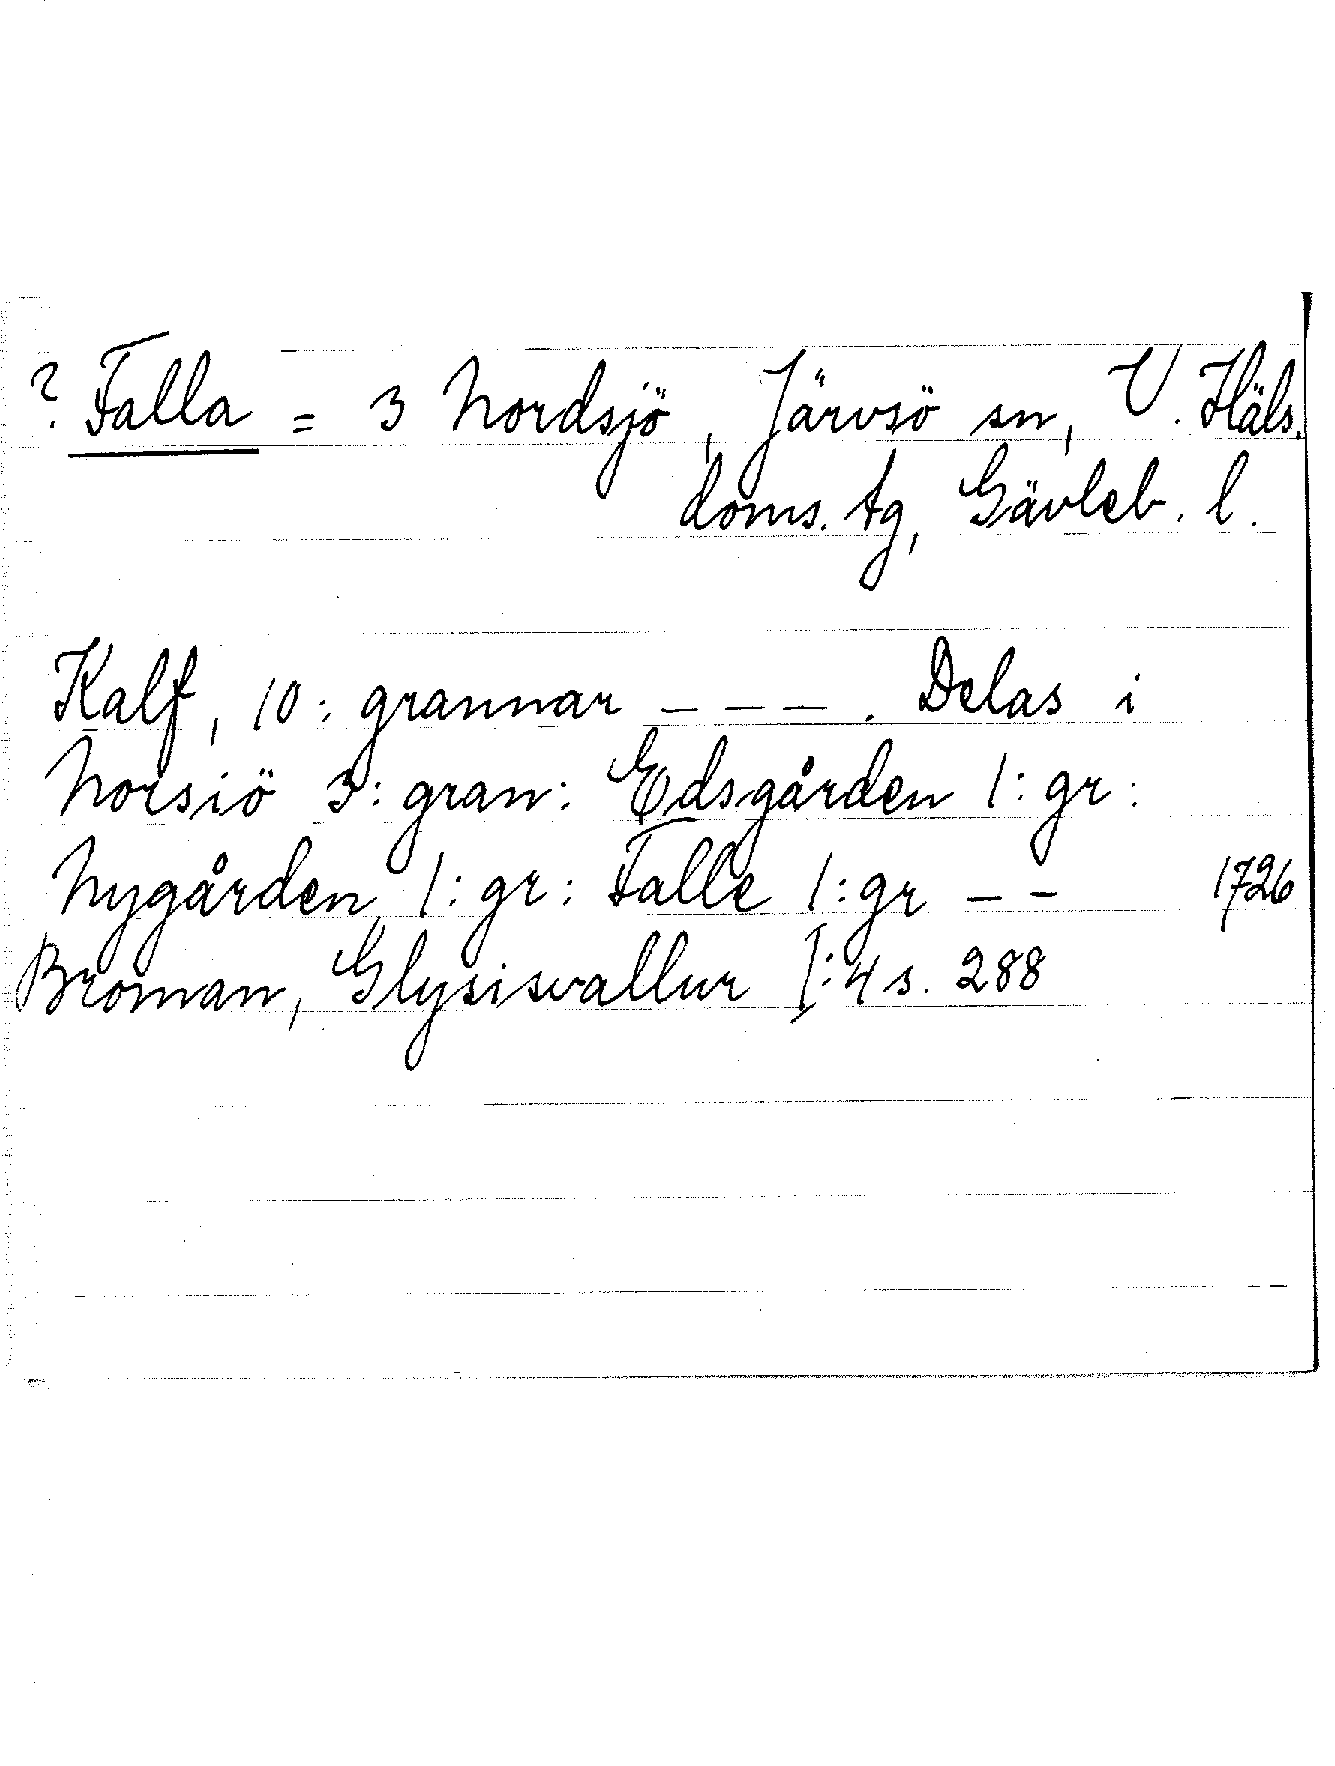 ? Falla = 3 Nordsjö, Järvsö sn, V. Häls.
doms. tg, Gävleb. l.
Kalf, 10: grannar – – – . Delas i
Norsiö 3: gran: Edsgården 1: gr:
Nygården 1: gr: Falle 1: gr – – 1726
Broman, Glysisvallur I:4 s. 288